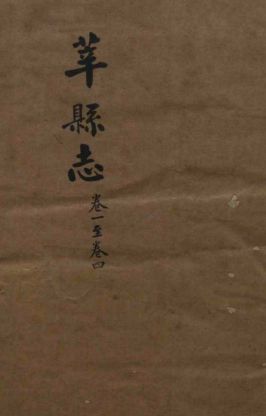 莘縣志
卷一至卷四